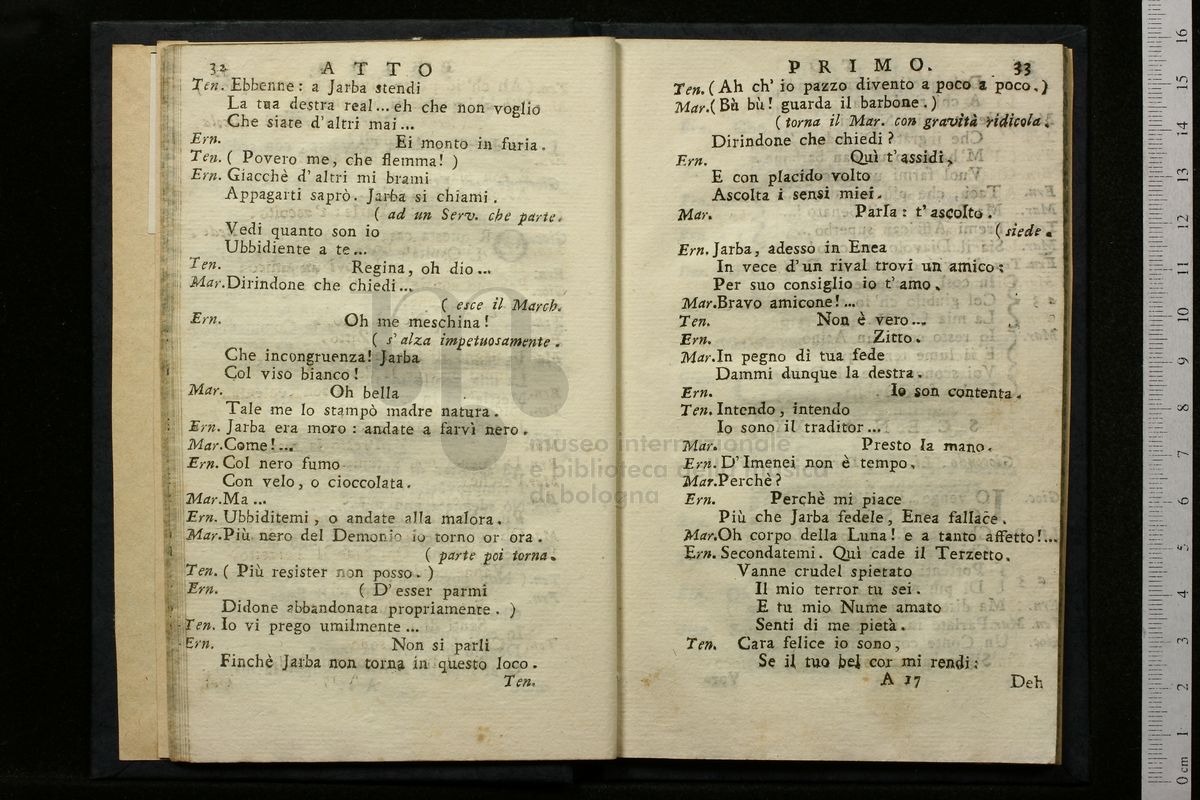 32 ATTO
Ten. Ebbenne: a Jarba stendi
La tua destra real... eh che non voglio
Che siate d'altri mai...
Ern. Ei monto in furia.
Ten. ( Povero me, che flemma! )
Ern. Giacchè d'altri mi brami
Appagarti saprò. Jarba si chiami.
( ad un Serv. che parte.
Vedi quanto son io
Ubbidiente a te...
Ten. Regina, oh dio...
Mar. Dirindone che chiedi...
( esce il March.
Ern. Oh me meschina!
( s'alza impetuosamente.
Che incongruenza! Jarba
Col viso bianco!
Mar. Oh bella
Tale me lo stampò madre natura.
Ern. Jarba era moro: andate a farvi nero.
Mar. Come!...
Ern. Col nero fumo
Con velo, o cioccolata.
Mar. Ma...
Ern. Ubbiditemi, o andate alla malora.
Mar. Più nero del Demonio io torno or ora.
( parte poi torna.
Ten. ( Più resister non posso. )
Ern. ( D'esser parmi
Didone abbandonata propriamente. )
Ten. Io vi prego umilmente...
Ern. Non si parli
Finchè Jarba non torna in questo loco.
Ten.
PRIMO. 33
Ten. ( Ah ch'io pazzo divento a poco a poco.)
Mar. ( Bù bù! guarda il barbone.)
( torna il Mar. con gravità ridicola.
Dirindone che chiedi?
Ern. Quì t'assidi,
E con placido volto
Ascolta i sensi miei.
Mar. Parla: t'ascolto.
( siede.
Ern. Jarba, adesso in Enea
In vece d'un rival trovi un amico:
Per suo consiglio io t'amo.
Mar. Bravo amicone!...
Ten. Non è vero...
Ern. Zitto.
Mar. In pegno di tua fede
Dammi dunque la destra.
Ern. Io son contenta.
Ten. Intendo, intendo
Io sono il traditor...
Mar. Presto la mano.
Ern. D'Imenei non è tempo.
Mar. Perchè?
Ern. Perchè mi piace
Più che Jarba fedele, Enea fallace.
Mar. Oh corpo della Luna! e a tanto affetto!...
Ern. Secondatemi. Quì cade il Terzetto.
Vanne crudel spietato
Il mio terror tu sei.
E tu mio Nume amato
Senti di me pietà.
Ten. Cara felice io sono,
Se il tuo bel cor mi rendi:
A 17 Deh
museo internazionale
e biblioteca della musica
di bologna
16
15
14
13
12
11
10
9
8
7
6
5
4
3
2
1
0 cm